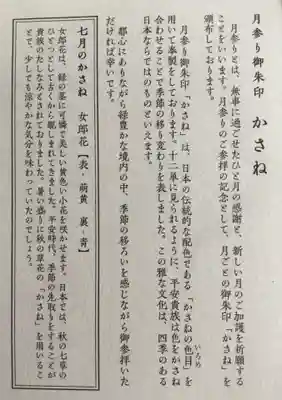 月参り御朱印 かさね
月参りとは、無事に過ごせたひと月の感謝と、新しい月のご加護を祈願する
ことをいいます。月参りのご参拝の記念として、月ごとの御朱印「かさね」を
頒布しております。
月参り御朱印「かさね」は、日本の伝統的な配色である「かさねの色目」を
いろめ
用いて奉製をしております。十二単に見られるように、平安貴族は色をかさね
合わせることで季節の移り変わりを表しました。この雅な文化は、四季のある
日本ならではのものといえます。
都心にありながら緑豊かな境内の中、季節の移ろいを感じながら御参拝いた
だければ幸いです。
七月のかさね 女郎花【表・萌黄 裏・青】
女郎花は、緑の茎に可憐で美しい黄色い小花を咲かせます。日本では、秋の七草の
ひとつとして古くから親しまれてきました。平安時代、季節の先取りをすることが
貴族のたしなみとされておりました。暑い盛りに秋の草花の「かさね」を用いるこ
とで、少しでも涼やかな気分を味わっていたのでしょう。